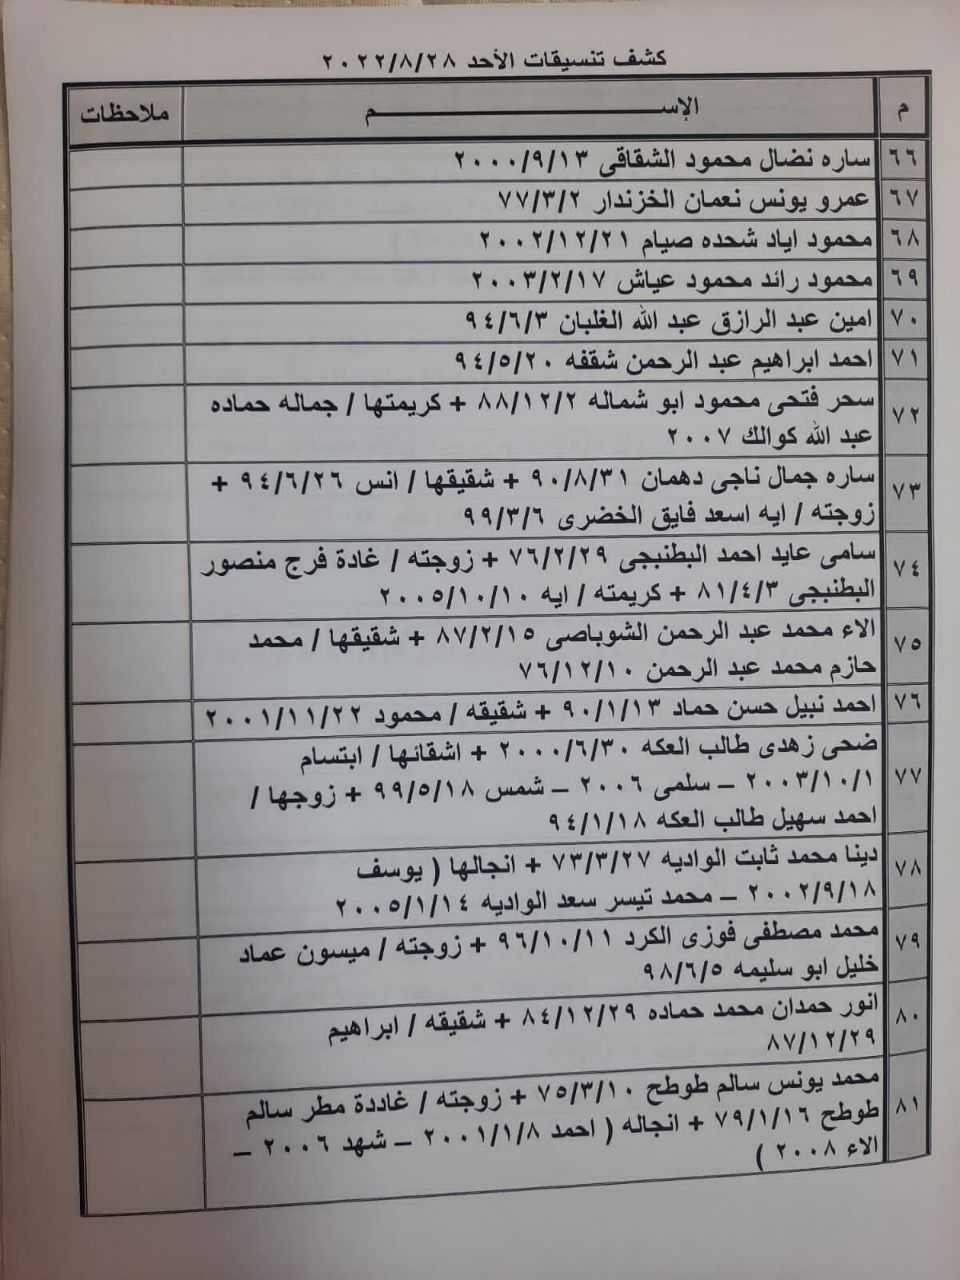 كشف تنسيقات الأحد ٢٠٢٢/٨/٢٨
م الإســــــــــــــــــــــم ملاحظات
٦٦ ساره نضال محمود الشقاقى ٢٠٠٠/٩/١٣
٦٧ عمرو يونس نعمان الخزندار ٧٧/٣/٢
٦٨ محمود اياد شحده صيام ٢٠٠٢/١٢/٢١
٦٩ محمود رائد محمود عياش ٢٠٠٣/٢/١٧
٧٠ امين عبد الرازق عبد الله الغلبان ٩٤/٦/٣
٧١ احمد ابراهيم عبد الرحمن شقفه ٩٤/٥/٢٠
٧٢ سحر فتحى محمود ابو شماله ٨٨/١٢/٢ + كريمتها / جماله حماده
عبد الله كوالك ٢٠٠٧
٧٣ ساره جمال ناجى دهمان ٩٠/٨/٣١ + شقيقها / انس ٩٤/٦/٢٦ +
زوجته / ايه اسعد فايق الخضرى ٩٩/٣/٦
٧٤ سامى عايد احمد البطنيجى ٧٦/٢/٢٩ + زوجته / غادة فرج منصور
البطنيجى ٨١/٤/٣ + كريمته / ايه ٢٠٠٥/١٠/١٠
٧٥ الاء محمد عبد الرحمن الشوباصى ٨٧/٢/١٥ + شقيقها / محمد
حازم محمد عبد الرحمن ٧٦/١٢/١٠
٧٦ احمد نبيل حسن حماد ٩٠/١/١٣ + شقيقه / محمود ٢٠٠١/١١/٢٢
٧٧ ضحى زهدى طالب العكه ٢٠٠٠/٦/٣٠ + اشقائها / ابتسام
٢٠٠٣/١٠/١ – سلمى ٢٠٠٦ – شمس ٩٩/٥/١٨ + زوجها /
احمد سهيل طالب العكه ٩٤/١/١٨
٧٨ دينا محمد ثابت الواديه ٧٣/٣/٢٧ + انجالها ( يوسف
٢٠٠٢/٩/١٨ – محمد تيسر سعد الواديه ٢٠٠٥/١/١٤
٧٩ محمد مصطفى فوزى الكرد ٩٦/١٠/١١ + زوجته / ميسون عماد
خليل ابو سليمه ٩٨/٦/٥
٨٠ انور حمدان محمد حماده ٨٤/١٢/٢٩ + شقيقه / ابراهيم
٨٧/١٢/٢٩
٨١ محمد يونس سالم طوطح ٧٥/٣/١٠ + زوجته / غاددة مطر سالم
طوطح ٧٩/١/١٦ + انجاله ( احمد ٢٠٠١/١/٨ – شهد ٢٠٠٦ –
الاء ٢٠٠٨ )